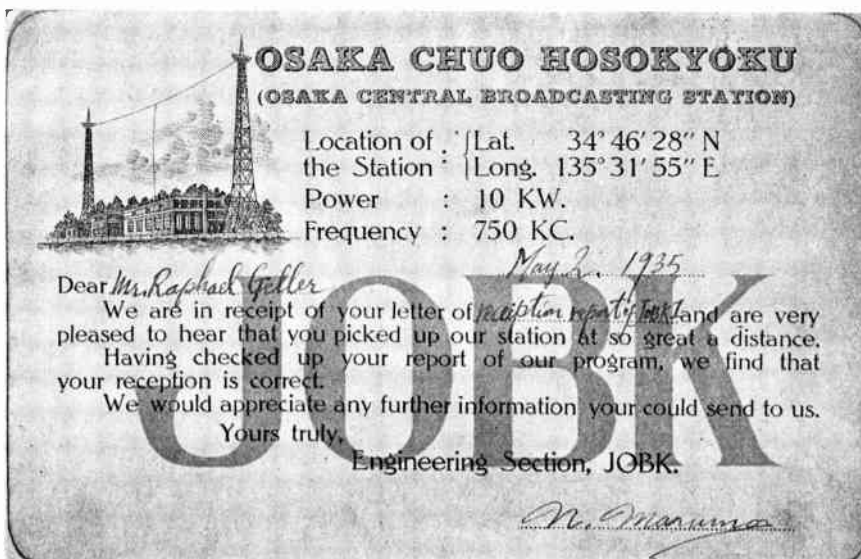 OSAKA CHUO HOSOKYOKU
(OSAKA CENTRAL BROADCASTING STATION)
Location of the Station : Lat. 34° 46' 28" N
Long. 135° 31' 55" E
Power : 10 KW.
Frequency : 750 KC.
May 2. 1935
Dear Mr. Raphael Geller
We are in receipt of your letter of reception report of and are very
pleased to hear that you picked up our station at so great a distance.
Having checked up your report of our program, we find that
your reception is correct.
We would appreciate any further information your could send to us.
Yours truly,
Engineering Section, JOBK.
JOBK